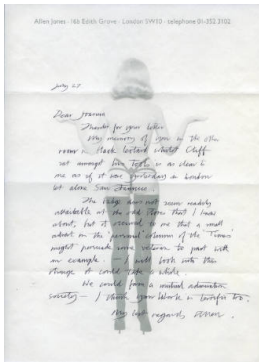 Allen Jones · 16b Edith Grove · London SW10 · telephone 01-352 2102
July 27
Dear Joanna
Thanks for your letter.
My memory of you in the other
room in black leotard whilst Cliff
sat amongst his Tools is as clear to
me as if it were yesterday in London
let alone San Francisco.
The image does not seem readily
attachable at the old store that I knew
about, but it occurred to me that a small
advert in the 'personal' column of the 'Times'
might persuade some veteran to part with
an example. — I will look into this
though it could take a while
We could form a mutual admiration
society — I think your Work is terrific too.
My best regards,